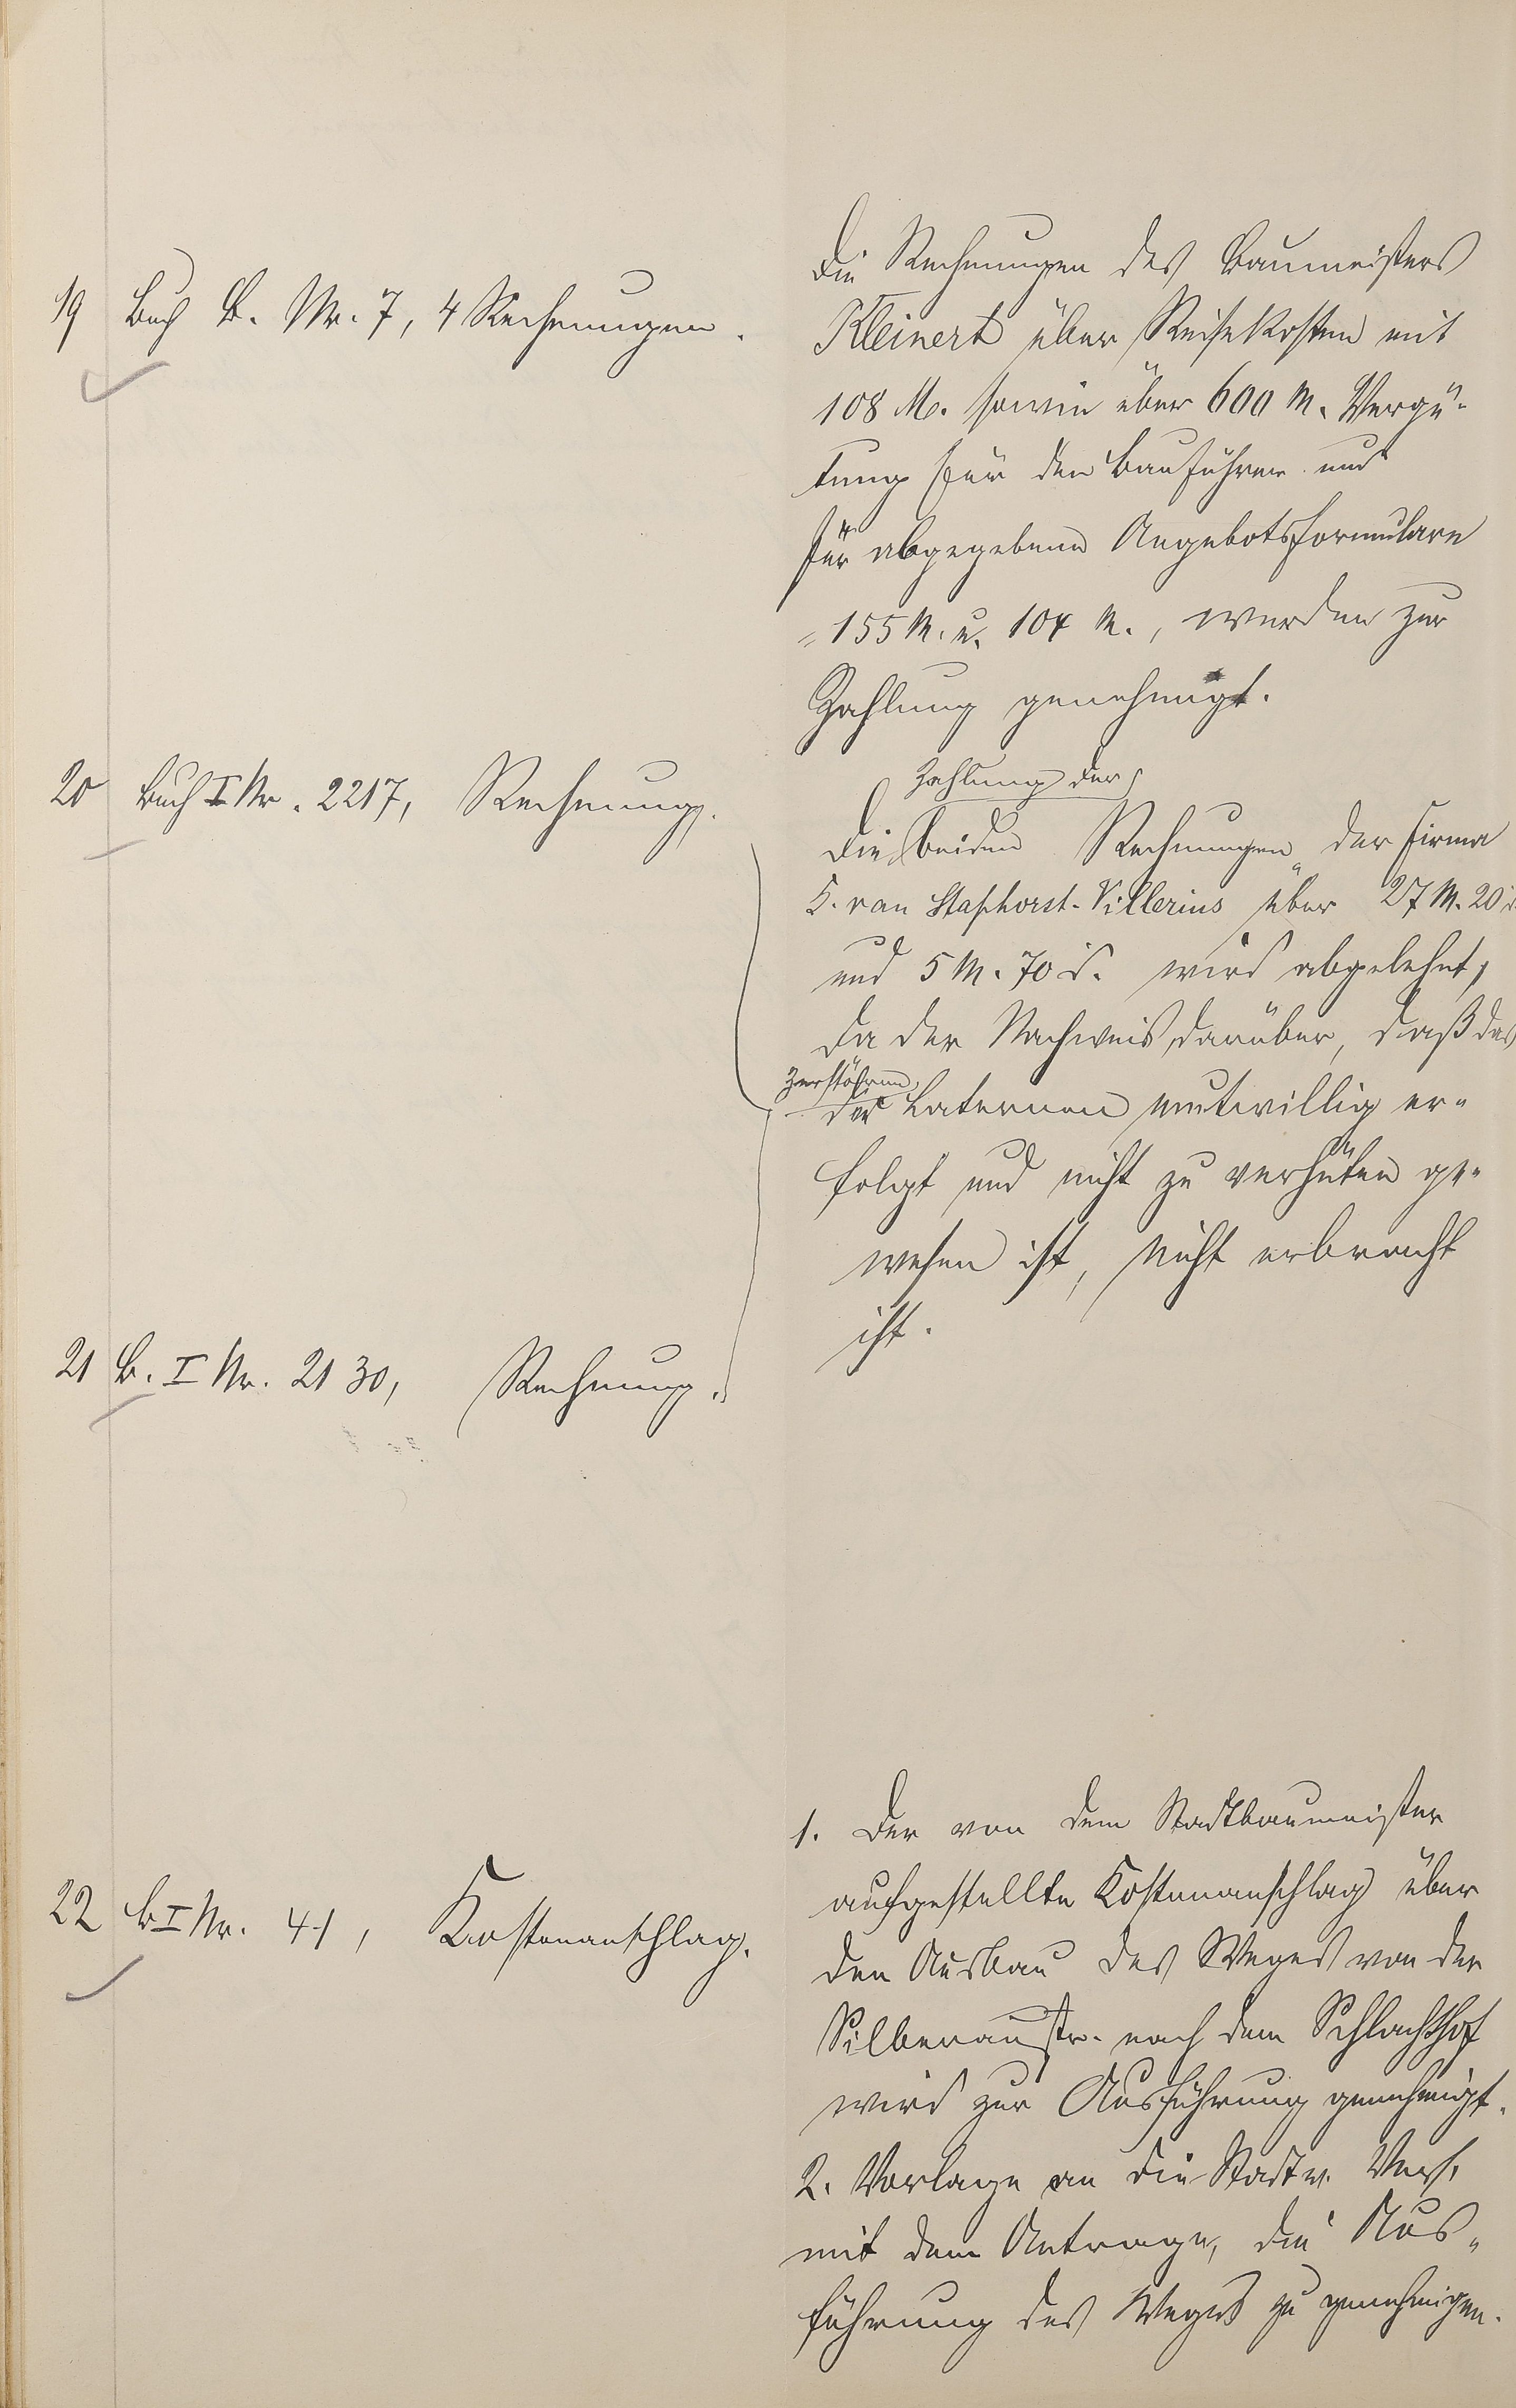 19 Buch B. Nr. 7, 4 Rechnungen.
Die Rechnungen des Baumeisters
Kleinert über Reisekosten mit
108 M. sowie über 600 M. Vergü-
tung für den Bauführer und
für abgegebene Angebotsformulare
= 155 M. u. 104 M., werden zur
Zahlung genehmigt.
20 Buch I Nr. 2217, Rechnung.
Zahlung der
Die beiden Rechnungen der Firma
K. van Staphorst-Villerius über 27 M. 20 d.
und 5 M. 70 d. wird abgelehnt,
da der Nachweis darüber, daß das
Zerstören
der Laternen mutwillig er-
folgt und nicht zu verhüten ge-
wesen ist, nicht erbracht
ist.
21 B. I Nr. 2130, Rechnung.
22 B I Nr. 41, Kostenanschlag.
1. Der von dem Stadtbaumeister
aufgestellte Kostenanschlag über
den Ausbau des Weges von der
Silberaustr. nach dem Schlachthof
wird zur Ausführung genehmigt.
2. Vorlage an die Stadtv. Vers.
mit dem Antrage, die Aus-
führung des Weges zu genehmigen.